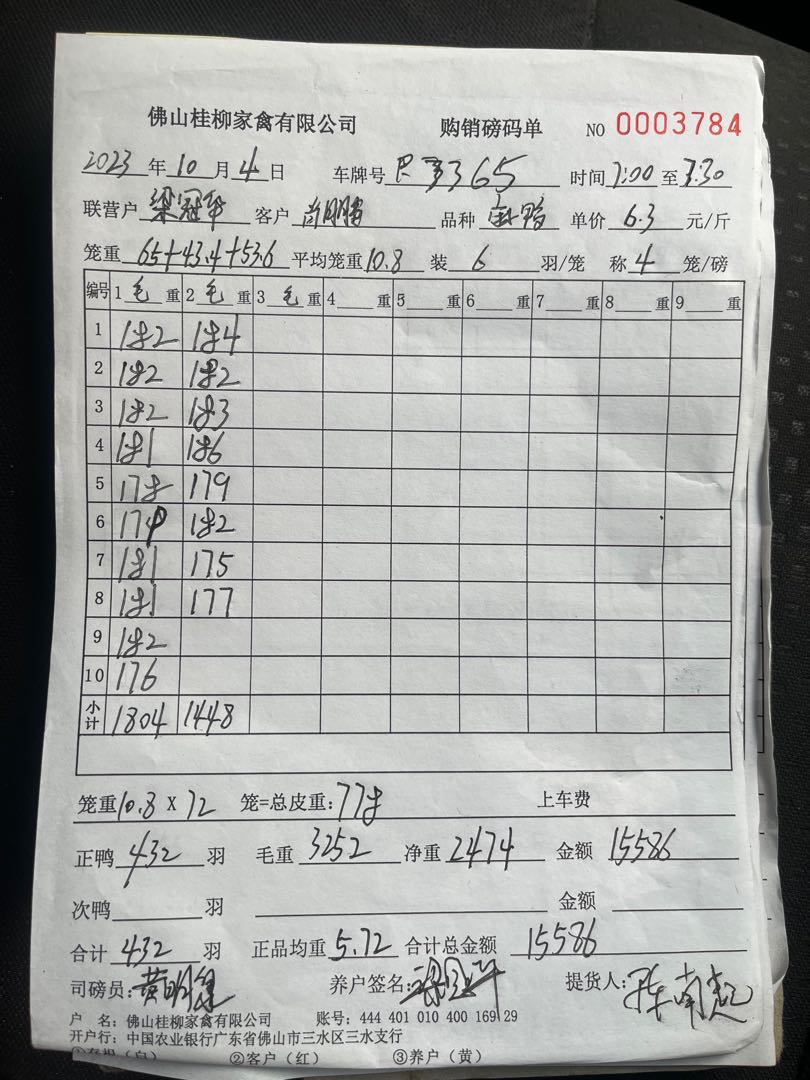 佛山桂柳家禽有限公司 购销磅码单 NO 0003784
2023 年 10 月 4 日 车牌号 365 时间 7:00 至 7:30
联营户 梁冠华 客户 肖明鹏 品种 鸭 单价 6.3 元/斤
笼重 65+43.4+53.6 平均笼重 10.8 装 6 羽/笼 称 4 笼/磅
编号 1 毛 重 2 毛 重 3 毛 重 4 重 5 重 6 重 7 重 8 重 9 重
1 182 184
2 182 182
3 182 183
4 181 186
5 178 179
6 179 182
7 181 175
8 181 177
9 182
10 176
小计 1804 1448
笼重 10.8 X 72 笼=总皮重: 778 上车费
正鸭 432 羽 毛重 3252 净重 2474 金额 15586
次鸭 羽 金额
合计 432 羽 正品均重 5.72 合计总金额 15586
司磅员: 黄明 养户签名: 梁冠华 提货人: 陈南
户 名: 佛山桂柳家禽有限公司 账号: 444 401 010 400 169 29
开户行: 中国农业银行广东省佛山市三水区三水支行
①存根（白） ②客户（红） ③养户（黄）